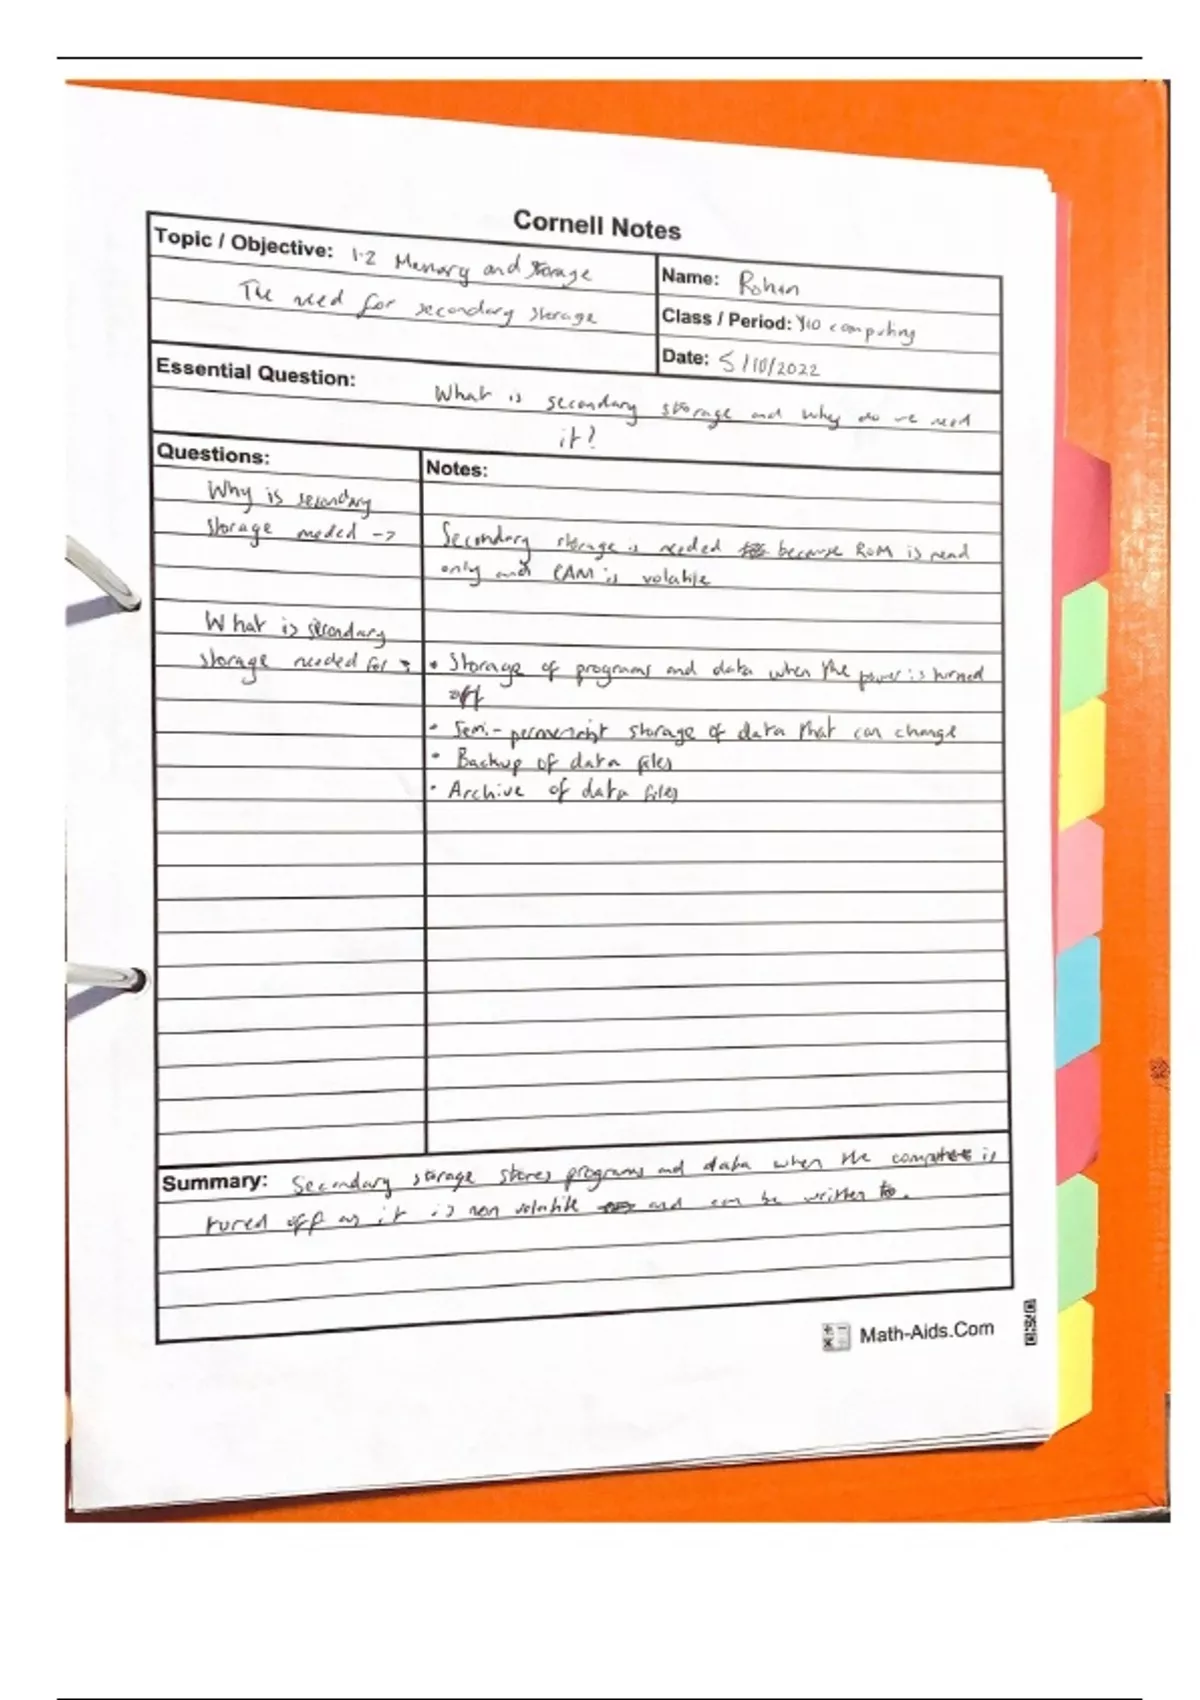 Cornell Notes
Topic / Objective: 1.2 Memory and storage
The need for secondary storage
Name: Rohan
Class / Period: Y10 computing
Date: 5/10/2022
Essential Question:
What is secondary storage and why do we need
it?
Questions:
Notes:
Why is secondary
storage needed ->
Secondary storage is needed because ROM is read
only and RAM is volatile
What is secondary
storage needed for ->
• Storage of programs and data when the power is turned
off
• Semi-permenant storage of data that can change
• Backup of data files
• Archive of data files
Summary: Secondary storage stores programs and data when the computer is
tured off as it is non volatile and can be written to.
Math-Aids.Com